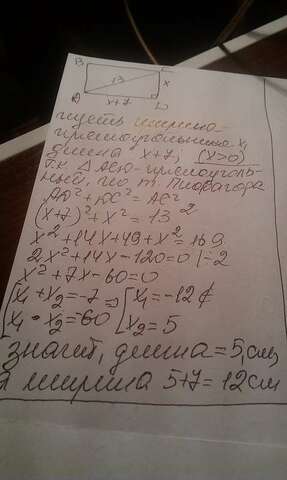 B C
13 x
A x+7 D
пусть ширина
прямоугольника x,
длина x+7, (x>0)
т.к. △ ACD-прямоуголь-
ный, то т. Пифагора
AD²+DC²=AC²
(x+7)²+x²=13²
x²+14x+49+x²=169
2x²+14x-120=0 |÷2
x²+7x-60=0
[x₁+x₂=-7 ⇒ [x₁=-12 ∉
[x₁·x₂=-60 [x₂=5
значит, длина=5,см,
а ширина 5+7=12см